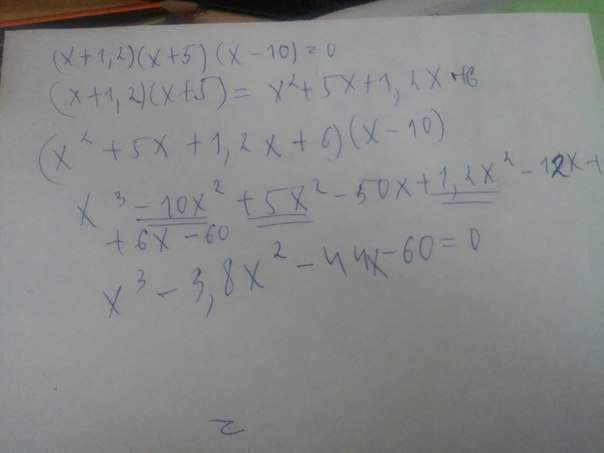 (x+1,2)(x+5)(x-10)=0
(x+1,2)(x+5)=x²+5x+1,2x+6
(x²+5x+1,2x+6)(x-10)
x³-10x²+5x²-50x+1,2x²-12x+
+6x-60
x³-3,8x²-44x-60=0